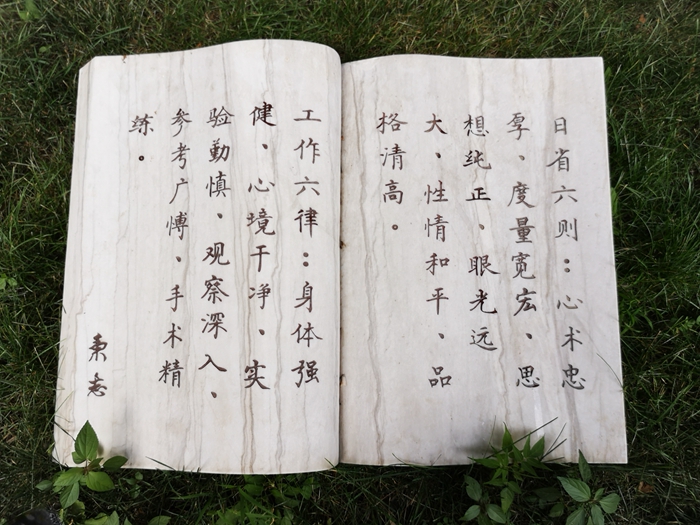 日省六则：心术忠
厚、度量宽宏、思
想纯正、眼光远
大、性情和平、品
格清高。
工作六律：身体强
健、心境干净、实
验勤慎、观察深入、
参考广博、手术精
练。
秉志